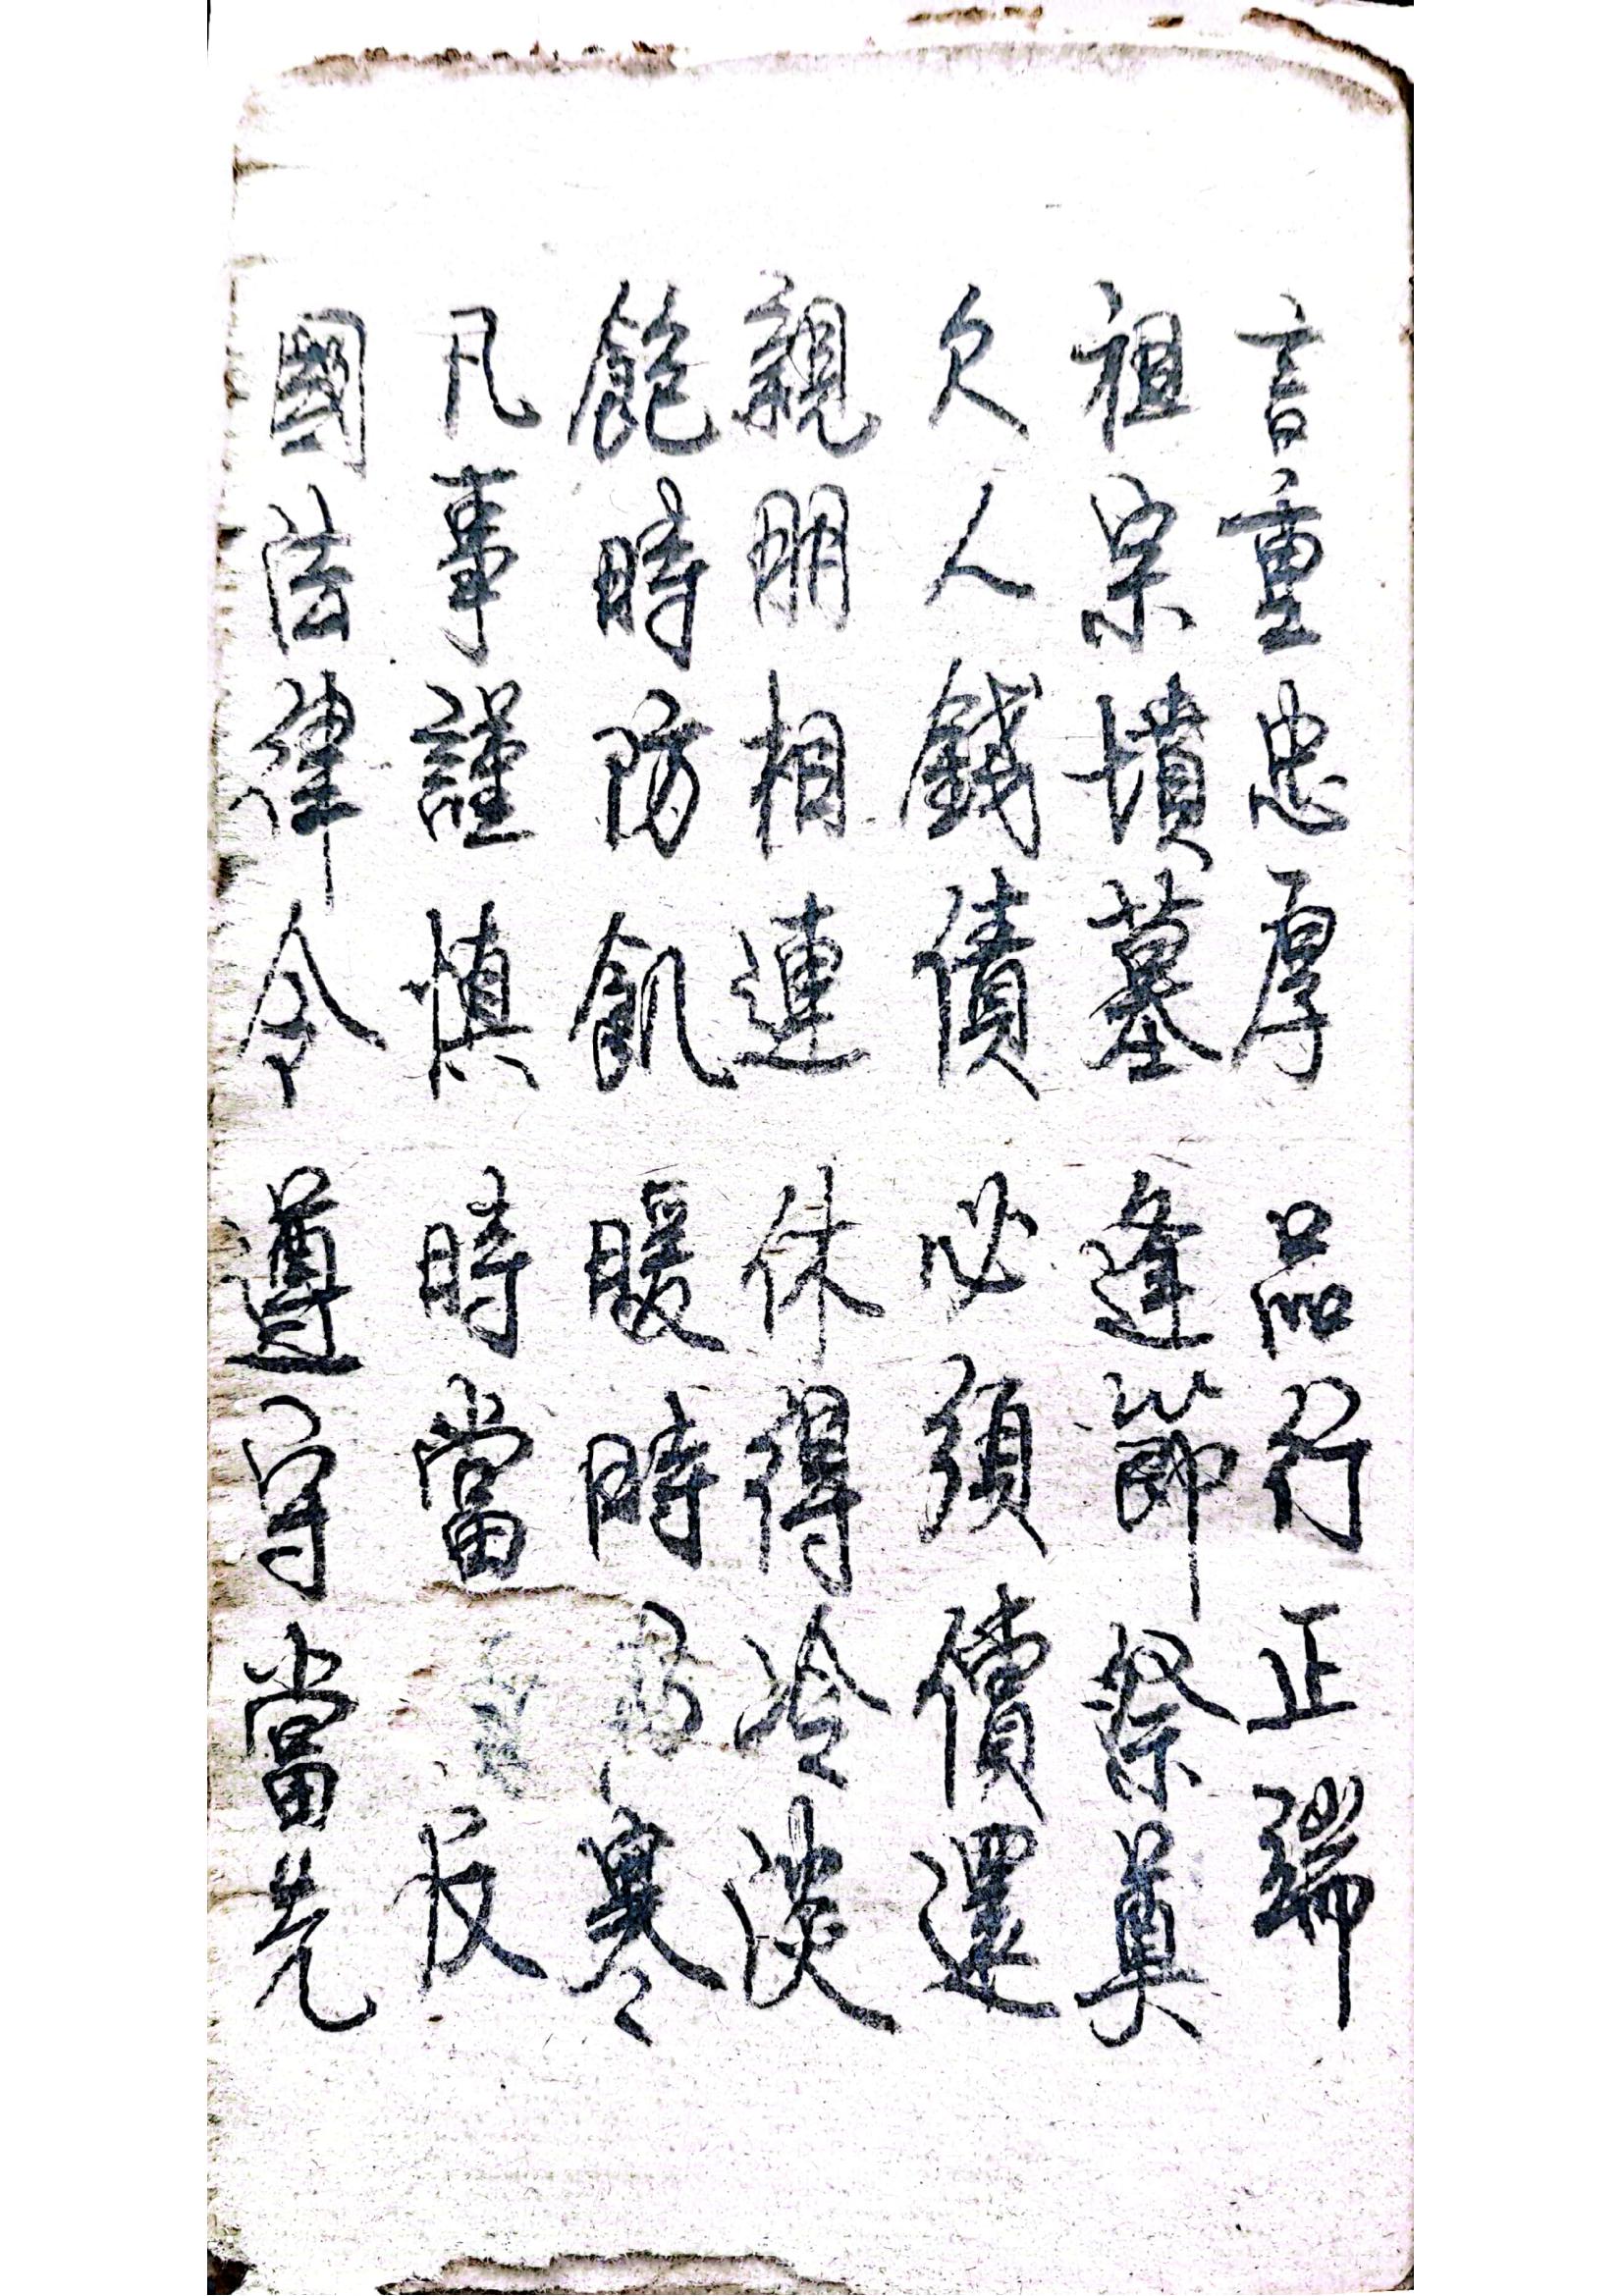 言重忠厚 品行正端
祖宗墳墓 逢節祭奠
欠人錢債 必須償還
親朋相連 休得冷淡
飽時防飢 暖時防寒
凡事謹慎 時當
國法律令 遵守當先